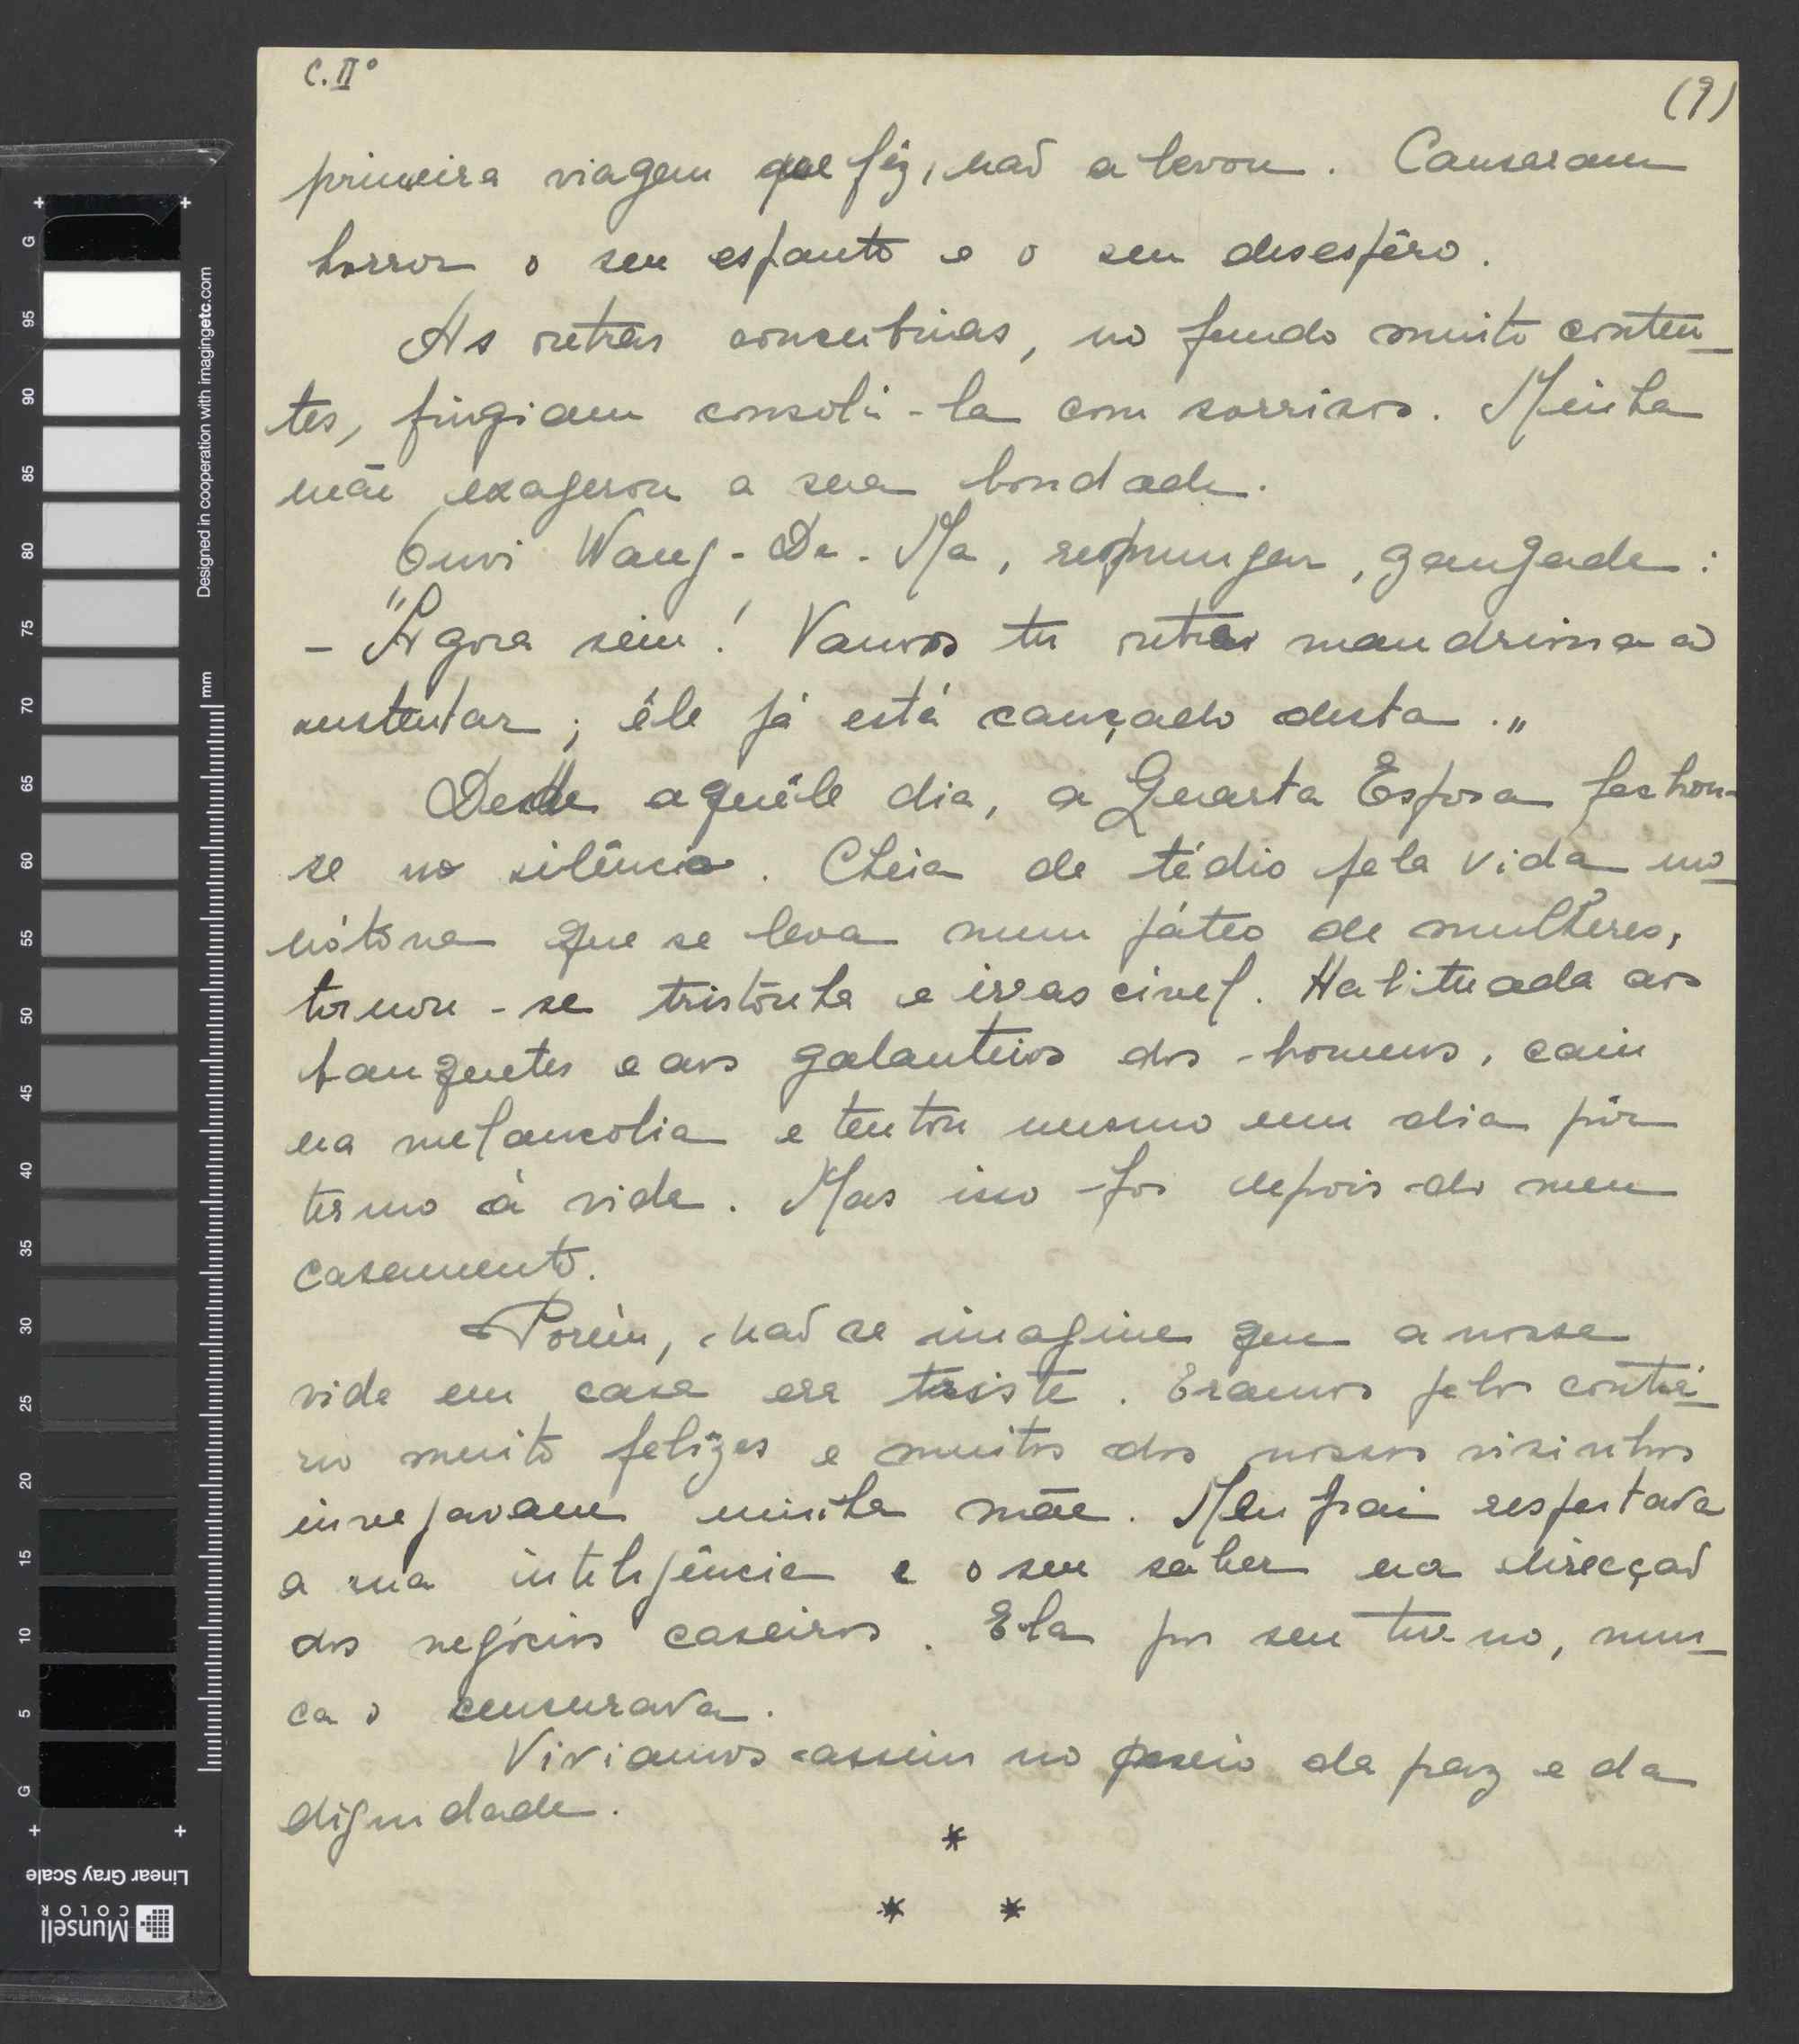 C. IIº
(9)
primeira viagem que fêz, não a levou. Causaram
horror o seu espanto e o seu desespêro.
As outras concubinas, no fundo muito conten-
tes, fingiam consolá-la com sorrisos. Minha
mãe exagerou a sua bondade.
Ouvi Wang-Da-Ma, resmungar, zangada:
- "Agora sim! Vamos ter outra mandriona a
sustentar; êle já está cançado desta."
Desde aquêle dia, a Quarta Esposa fechou-
se no silêncio. Cheia de tédio pela vida mo-
nótona que se leva num páteo de mulheres,
tornou-se tristônha e irrascivel. Habituada aos
banquetes e aos galanteios dos homens, caiu
na melancolia e tentou mesmo um dia pôr
termo à vida. Mas isso foi depois do meu
casamento.
Porém, não se imagine que a nossa
vida em casa era triste. Eramos pelo contrá-
rio muito felizes e muitos dos nossos visinhos
invejavam minha mãe. Meu pai respeitava
a sua inteligência e o seu saber na direcção
dos negócios caseiros. Ela por seu turno, nun-
ca o censurava.
Viviamos assim no seio da paz e da
dignidade.
*
* *
Designed in cooperation with imagingetc.com
mm
G 95 90 85 80 75 70 65 60 55 50 45 40 35 30 25 20 15 10 5 G
Linear Gray Scale
Munsell
COLOR